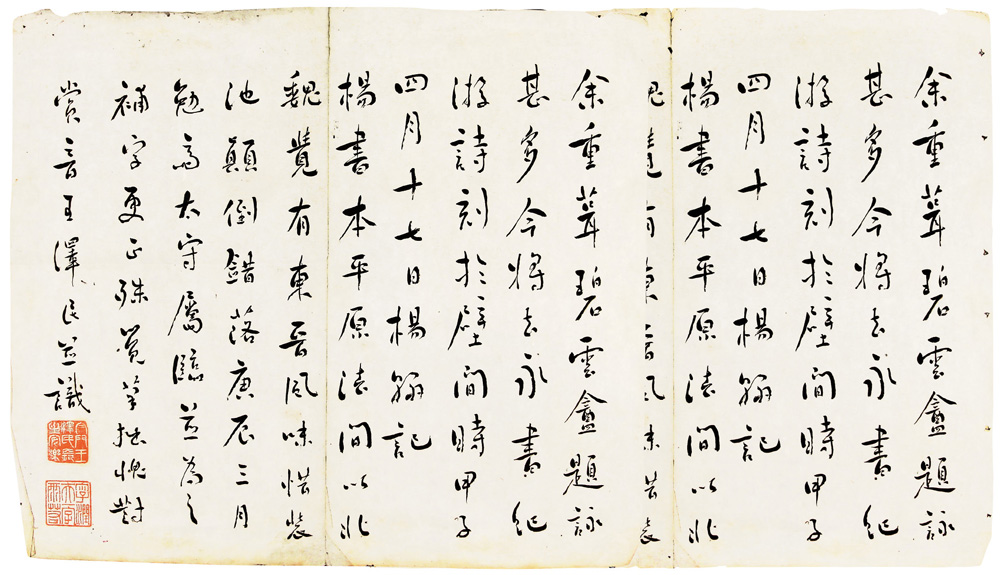 余重葺碧雲盦題詠
甚多今將去永書紀
游詩刻於壁間時甲子
四月十七日楊翰記
楊書本平原法間以北
魏覺有東晉風味惜裝
余重葺碧雲盦題詠
甚多今將去永書紀
游詩刻於壁間時甲子
四月十七日楊翰記
楊書本平原法間以北
魏覺有東晉風味惜裝
池顛倒錯落庚辰三月
勉太守屬臨並為之
補字更正殊覺筆拙愧對
賞音王澤民並識